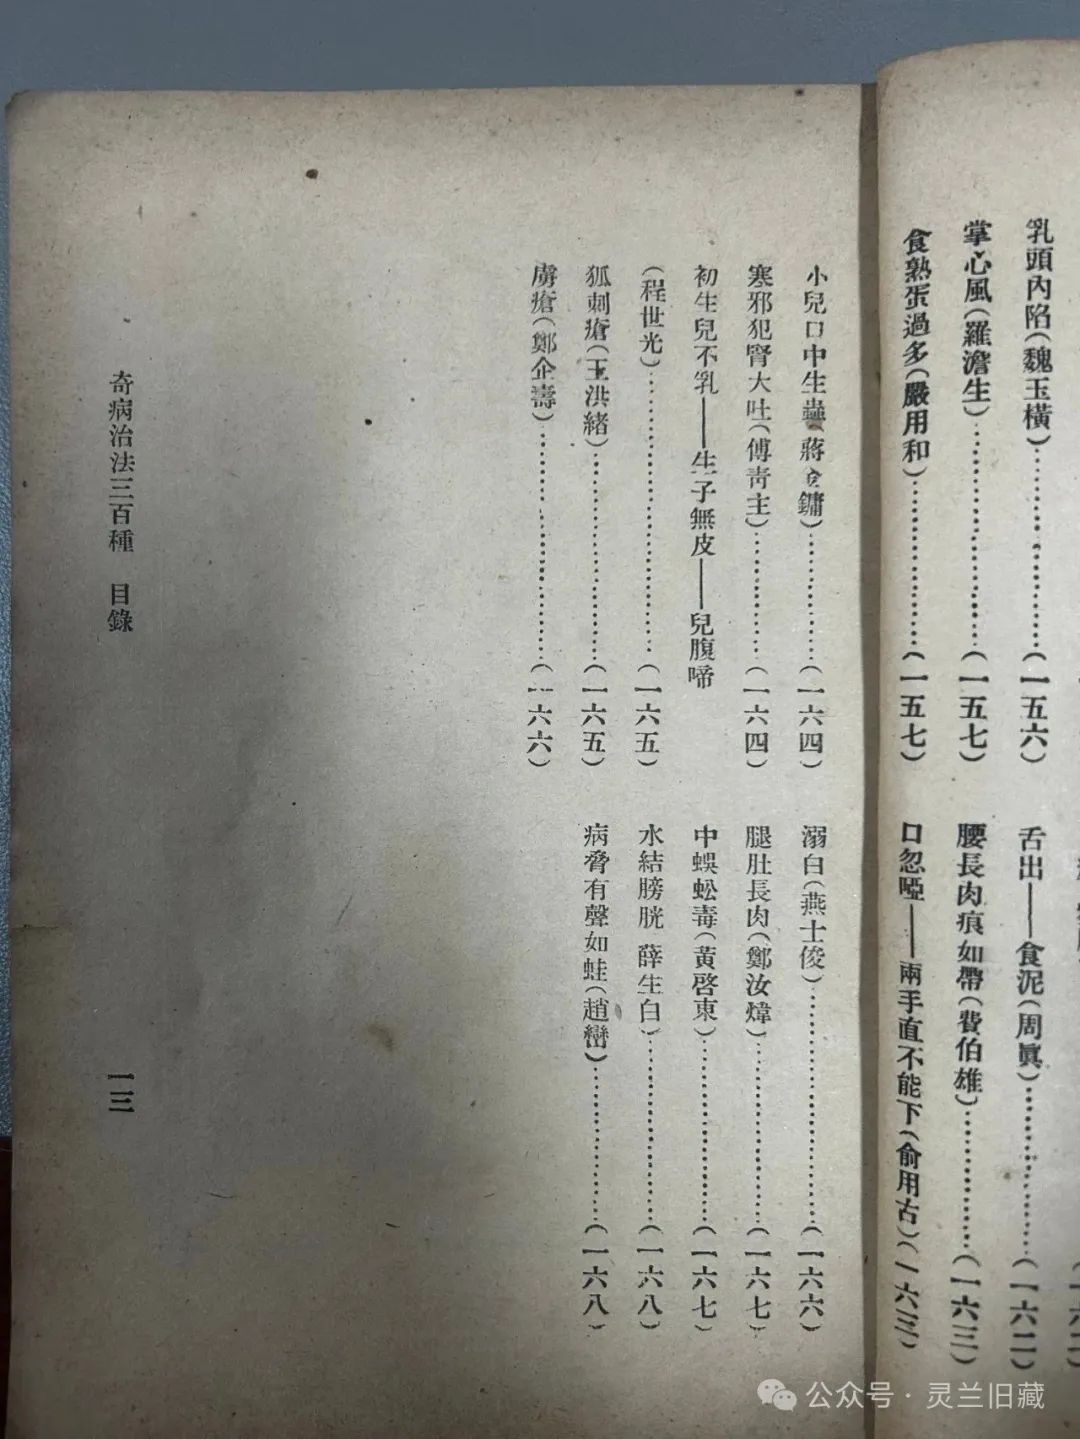 乳頭內陷(魏玉橫)…………(一五六)
掌心風(羅澹生)…………(一五七)
食熟蛋過多(嚴用和)…………(一五七)
舌出——食泥(周眞)…………(一六二)
腰長肉痕如帶(費伯雄)…………(一六三)
口忽啞——兩手直不能下(俞用古)(一六三)
小兒口中生蟲 蔣金鏞)…………(一六四)
寒邪犯腎大吐(傅靑主)…………(一六四)
初生兒不乳——生子無皮——兒腹啼
(程世光)…………(一六五)
狐刺瘡(王洪緒)…………(一六五)
虏瘡(鄭企壽)…………(一六六)
溺白(燕士俊)…………(一六六)
腿肚長肉(鄭汝煒)…………(一六七)
中蜈蚣毒(黃啓東)…………(一六七)
水結膀胱 薛生白)…………(一六八)
病脅有聲如蛙(趙巒)…………(一六八)
奇病治法三百種 目錄
一三
公众号·灵兰旧藏